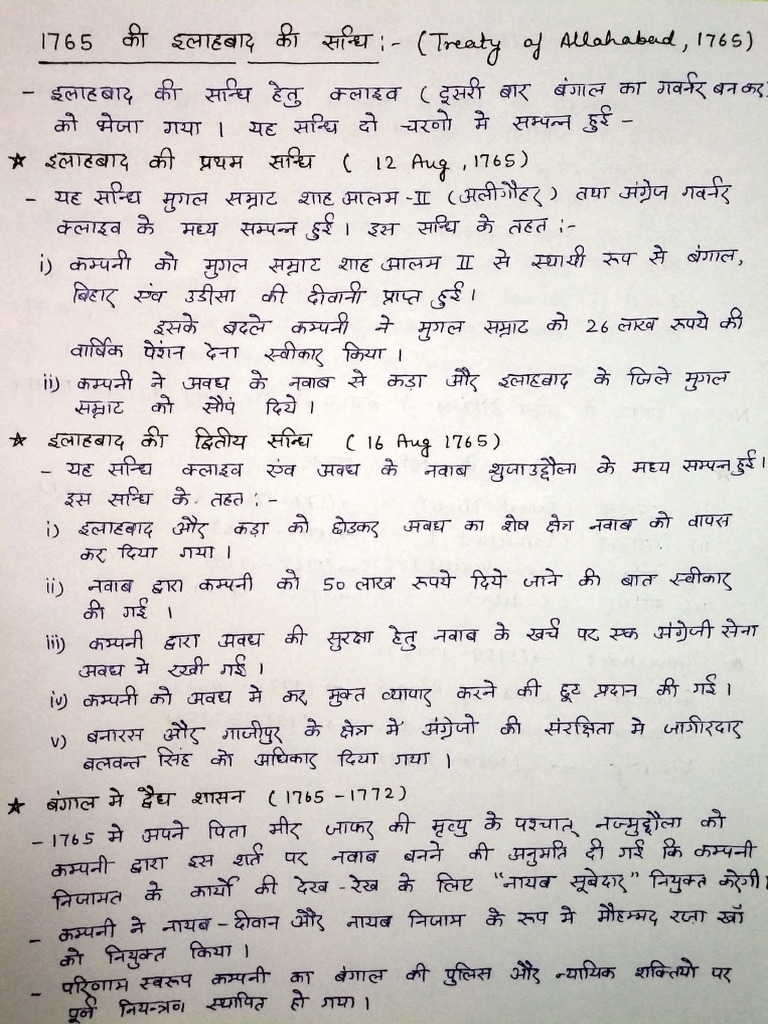 1765 की इलाहबाद की सन्धि :- (Treaty of Allahabad, 1765)
- इलाहबाद की सन्धि हेतु क्लाइव ( दूसरी बार बंगाल का गवर्नर बन कर)
को भेजा गया । यह सन्धि दो चरणो मे सम्पन्न हुई -
★ इलाहबाद की प्रथम सन्धि ( 12 Aug, 1765)
- यह सन्धि मुगल सम्राट शाह आलम -II (अलीगौहर) तथा अंग्रेज गवर्नर
क्लाइव के मध्य सम्पन्न हुई । इस सन्धि के तहत :-
i) कम्पनी को मुगल सम्राट शाह आलम II से स्थायी रूप से बंगाल,
बिहार एंव उडीसा की दीवानी प्राप्त हुई ।
इसके बदले कम्पनी ने मुगल सम्राट को 26 लाख रूपये की
वार्षिक पेंशन देना स्वीकार किया ।
ii) कम्पनी ने अवध के नवाब से कड़ा और इलाहबाद के जिले मुगल
सम्राट को सौंप दिये ।
★ इलाहबाद की द्वितीय सन्धि ( 16 Aug 1765)
- यह सन्धि क्लाइव एंव अवध के नवाब शुजाउद्दौला के मध्य सम्पन्न हुई ।
इस सन्धि के तहत :-
i) इलाहबाद और कड़ा को छोडकर अवध का शेष क्षेत्र नवाब को वापस
कर दिया गया ।
ii) नवाब द्वारा कम्पनी को 50 लाख रूपये दिये जाने की बात स्वीकार
की गई ।
iii) कम्पनी द्वारा अवध की सुरक्षा हेतु नवाब के खर्च पर एक अंग्रेजी सेना
अवध मे रखी गई ।
iv) कम्पनी को अवध मे कर मुक्त व्यापार करने की छूट प्रदान की गई ।
v) बनारस और गाजीपुर के क्षेत्र में अंग्रेजो की संरक्षिता मे जागीरदार
बलवन्त सिंह को अधिकार दिया गया ।
★ बंगाल मे द्वैध शासन (1765 -1772)
- 1765 मे अपने पिता मीर जाफर की मृत्यु के पश्चात् नज्मुद्दौला को
कम्पनी द्वारा इस शर्त पर नवाब बनने की अनुमति दी गई कि कम्पनी
निजामत के कार्यो की देख - रेख के लिए "नायब सूबेदार" नियुक्त करेगी ।
- कम्पनी ने नायब - दीवान और नायब निजाम के रूप मे मौहम्मद रजा खाँ
को नियुक्त किया ।
- परिणाम स्वरूप कम्पनी का बंगाल की पुलिस और न्यायिक शक्तियो पर
पूर्ण नियन्त्रण स्थापित हो गया ।